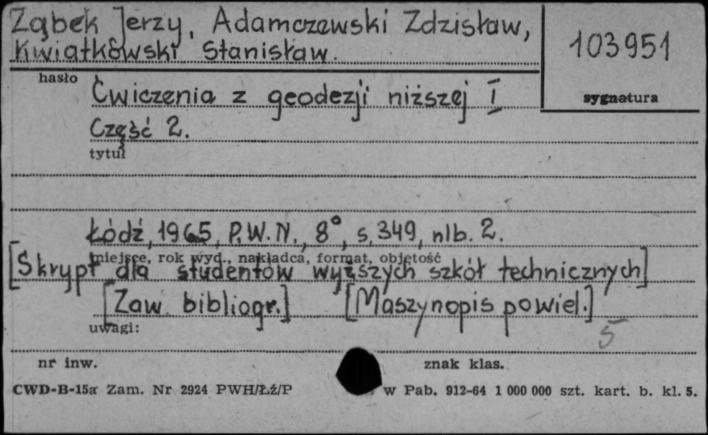 Ząbek Jerzy, Adamczewski Zdzisław,
Kwiatkowski Stanisław.
103951
hasło
sygnatura
Ćwiczenia z geodezji niższej I
Część 2.
tytuł
Łódź, 1965, P.W.N., 8°, s. 349, nlb. 2.
miejsce, rok wyd., nakładca, format, objętość
[Skrypt dla studentów wyższych szkół technicznych]
[Zaw. bibliogr.] [Maszynopis powiel.]
uwagi:
5
nr inw. znak klas.
CWD-B-15a Zam. Nr 2924 PWH/Łź/P w Pab. 912-64 1 000 000 szt. kart. b. kl. 5.